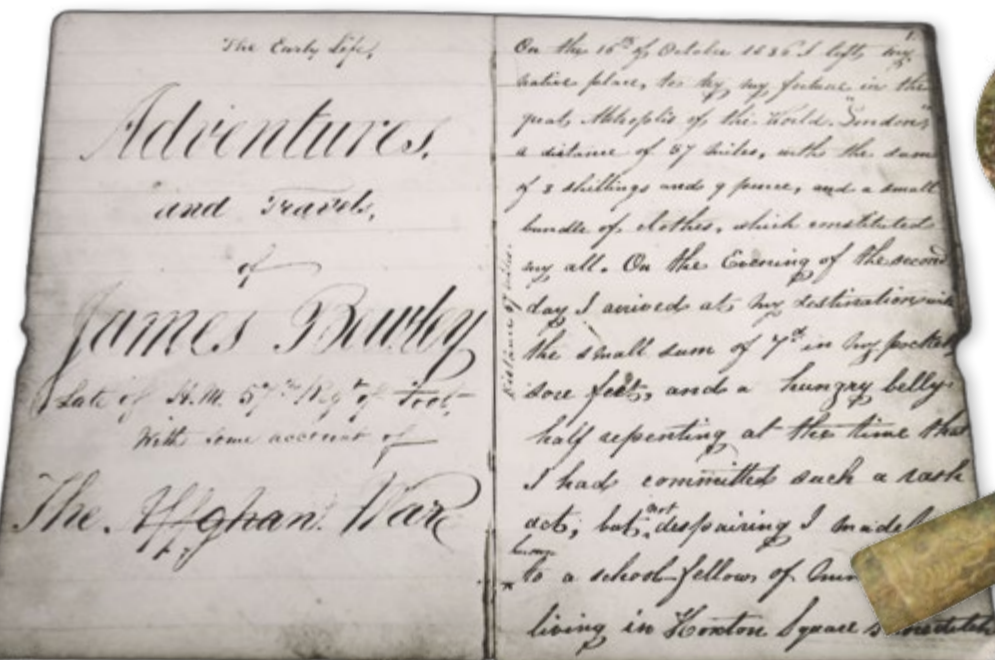 The Early Life,
Adventures,
and Travels,
of
James Bewley
Late of H.M. 57th Regt of Foot,
With some account of
The Affghan War
1.
On the 16th of October 1836 I left my
native place, to try my fortune in the
great Metropolis of the World "London"
a distance of 57 miles, with the sum
of 3 shillings and 9 pence, and a small
bundle of clothes, which constituted
my all. On the Evening of the second
day I arrived at my destination with
the small sum of 7d in my pocket
sore feet, and a hungry belly
half repenting at the time that
I had committed such a rash
act, but not despairing I made
to a school-fellow of
living in Hoxton Square
Distance 57 miles.